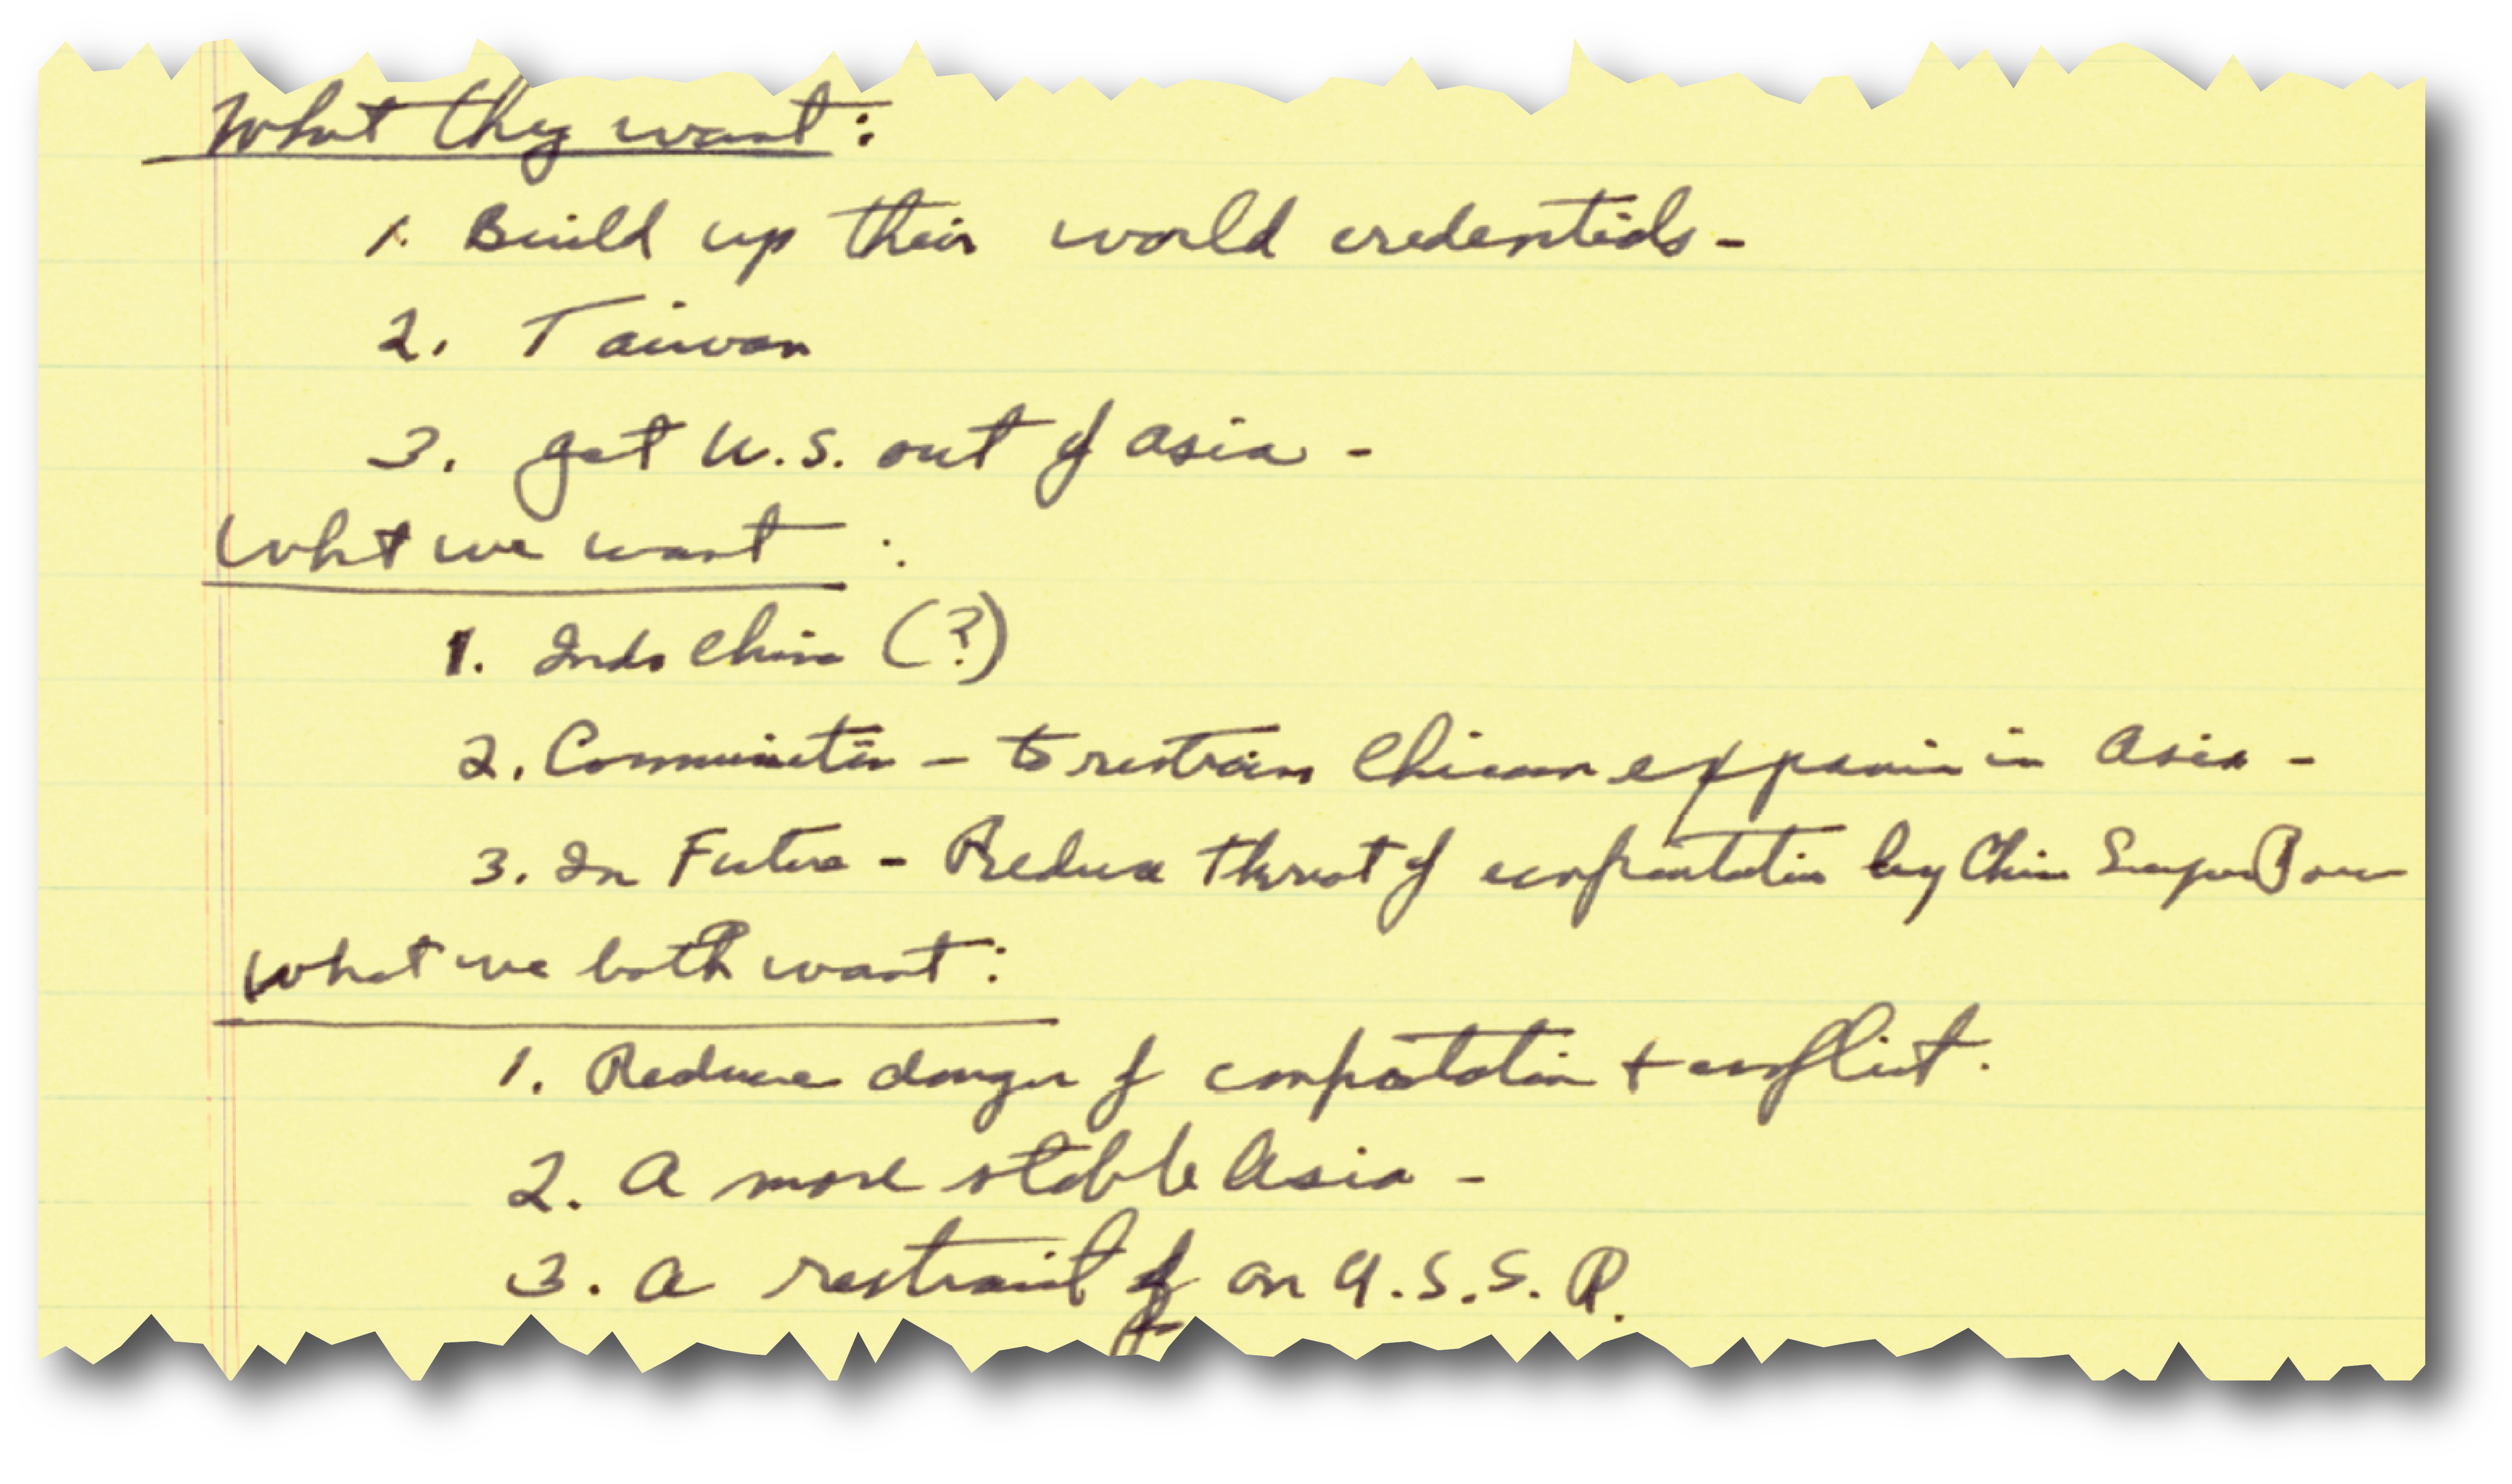 What they want:
1. Build up their world credentials -
2. Taiwan
3. get U.S. out of Asia -
What we want:
1. Indo China (?)
2. Communication - to restrain Chinese expansion in Asia -
3. In Future - Reduce threat of confrontation by China Super Power
What we both want:
1. Reduce danger of confrontation + conflict.
2. a more stable Asia -
3. a restraint on U.S.S.R.